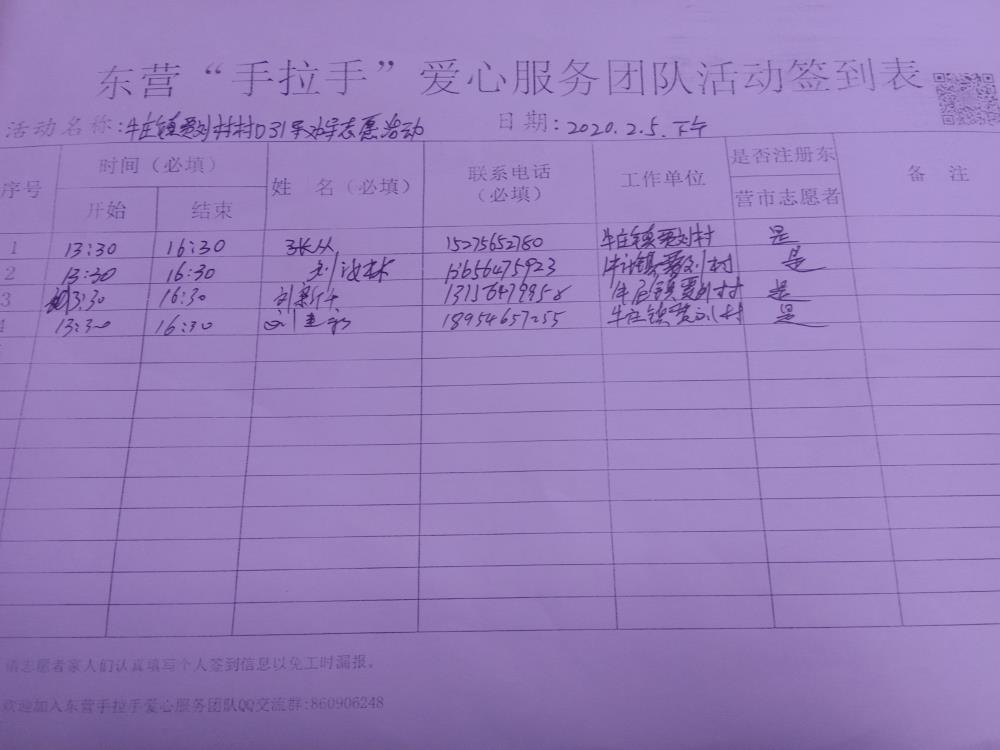 东营“手拉手”爱心服务团队活动签到表
活动名称：牛庄镇贾刘村 志愿活动 日期：2020.2.5.下午
序号 时间（必填） 姓 名（必填） 联系电话（必填） 工作单位 是否注册东营市志愿者 备 注
开始 结束
1 13:30 16:30 张从 15275652780 牛庄镇贾刘村 是
2 13:30 16:30 刘 林 13656475923 牛庄镇贾刘村 是
3 13:30 16:30 刘新 牛庄镇贾刘村 是
4 13:30 16:30 刘 18954657255 牛庄镇贾刘村 是
请志愿者家人们认真填写个人签到信息以免工时漏报。
欢迎加入东营手拉手爱心服务团队QQ交流群:860906248